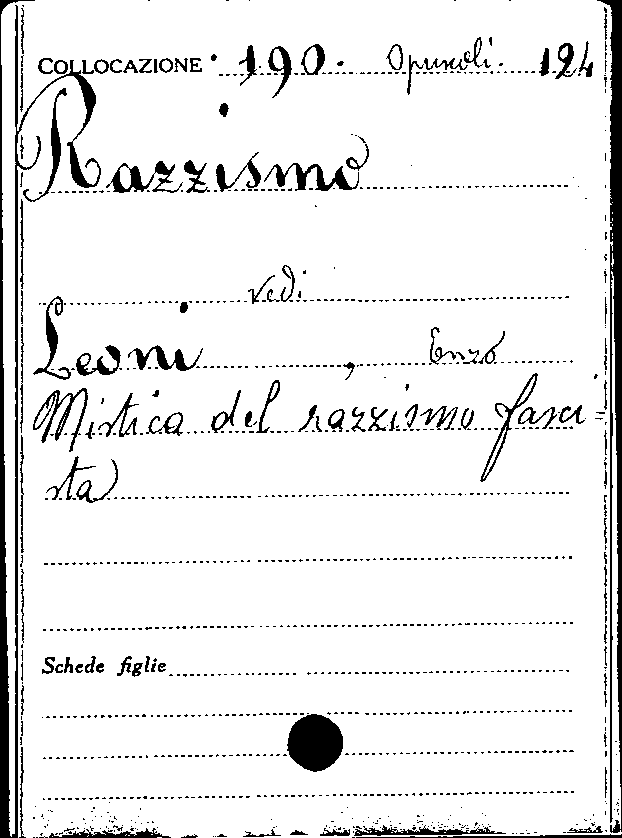 COLLOCAZIONE 190. Opuscoli. 124
Razzismo
vedi
Leoni, Enzo
Mistica del razzismo fasci=
sta
Schede figlie